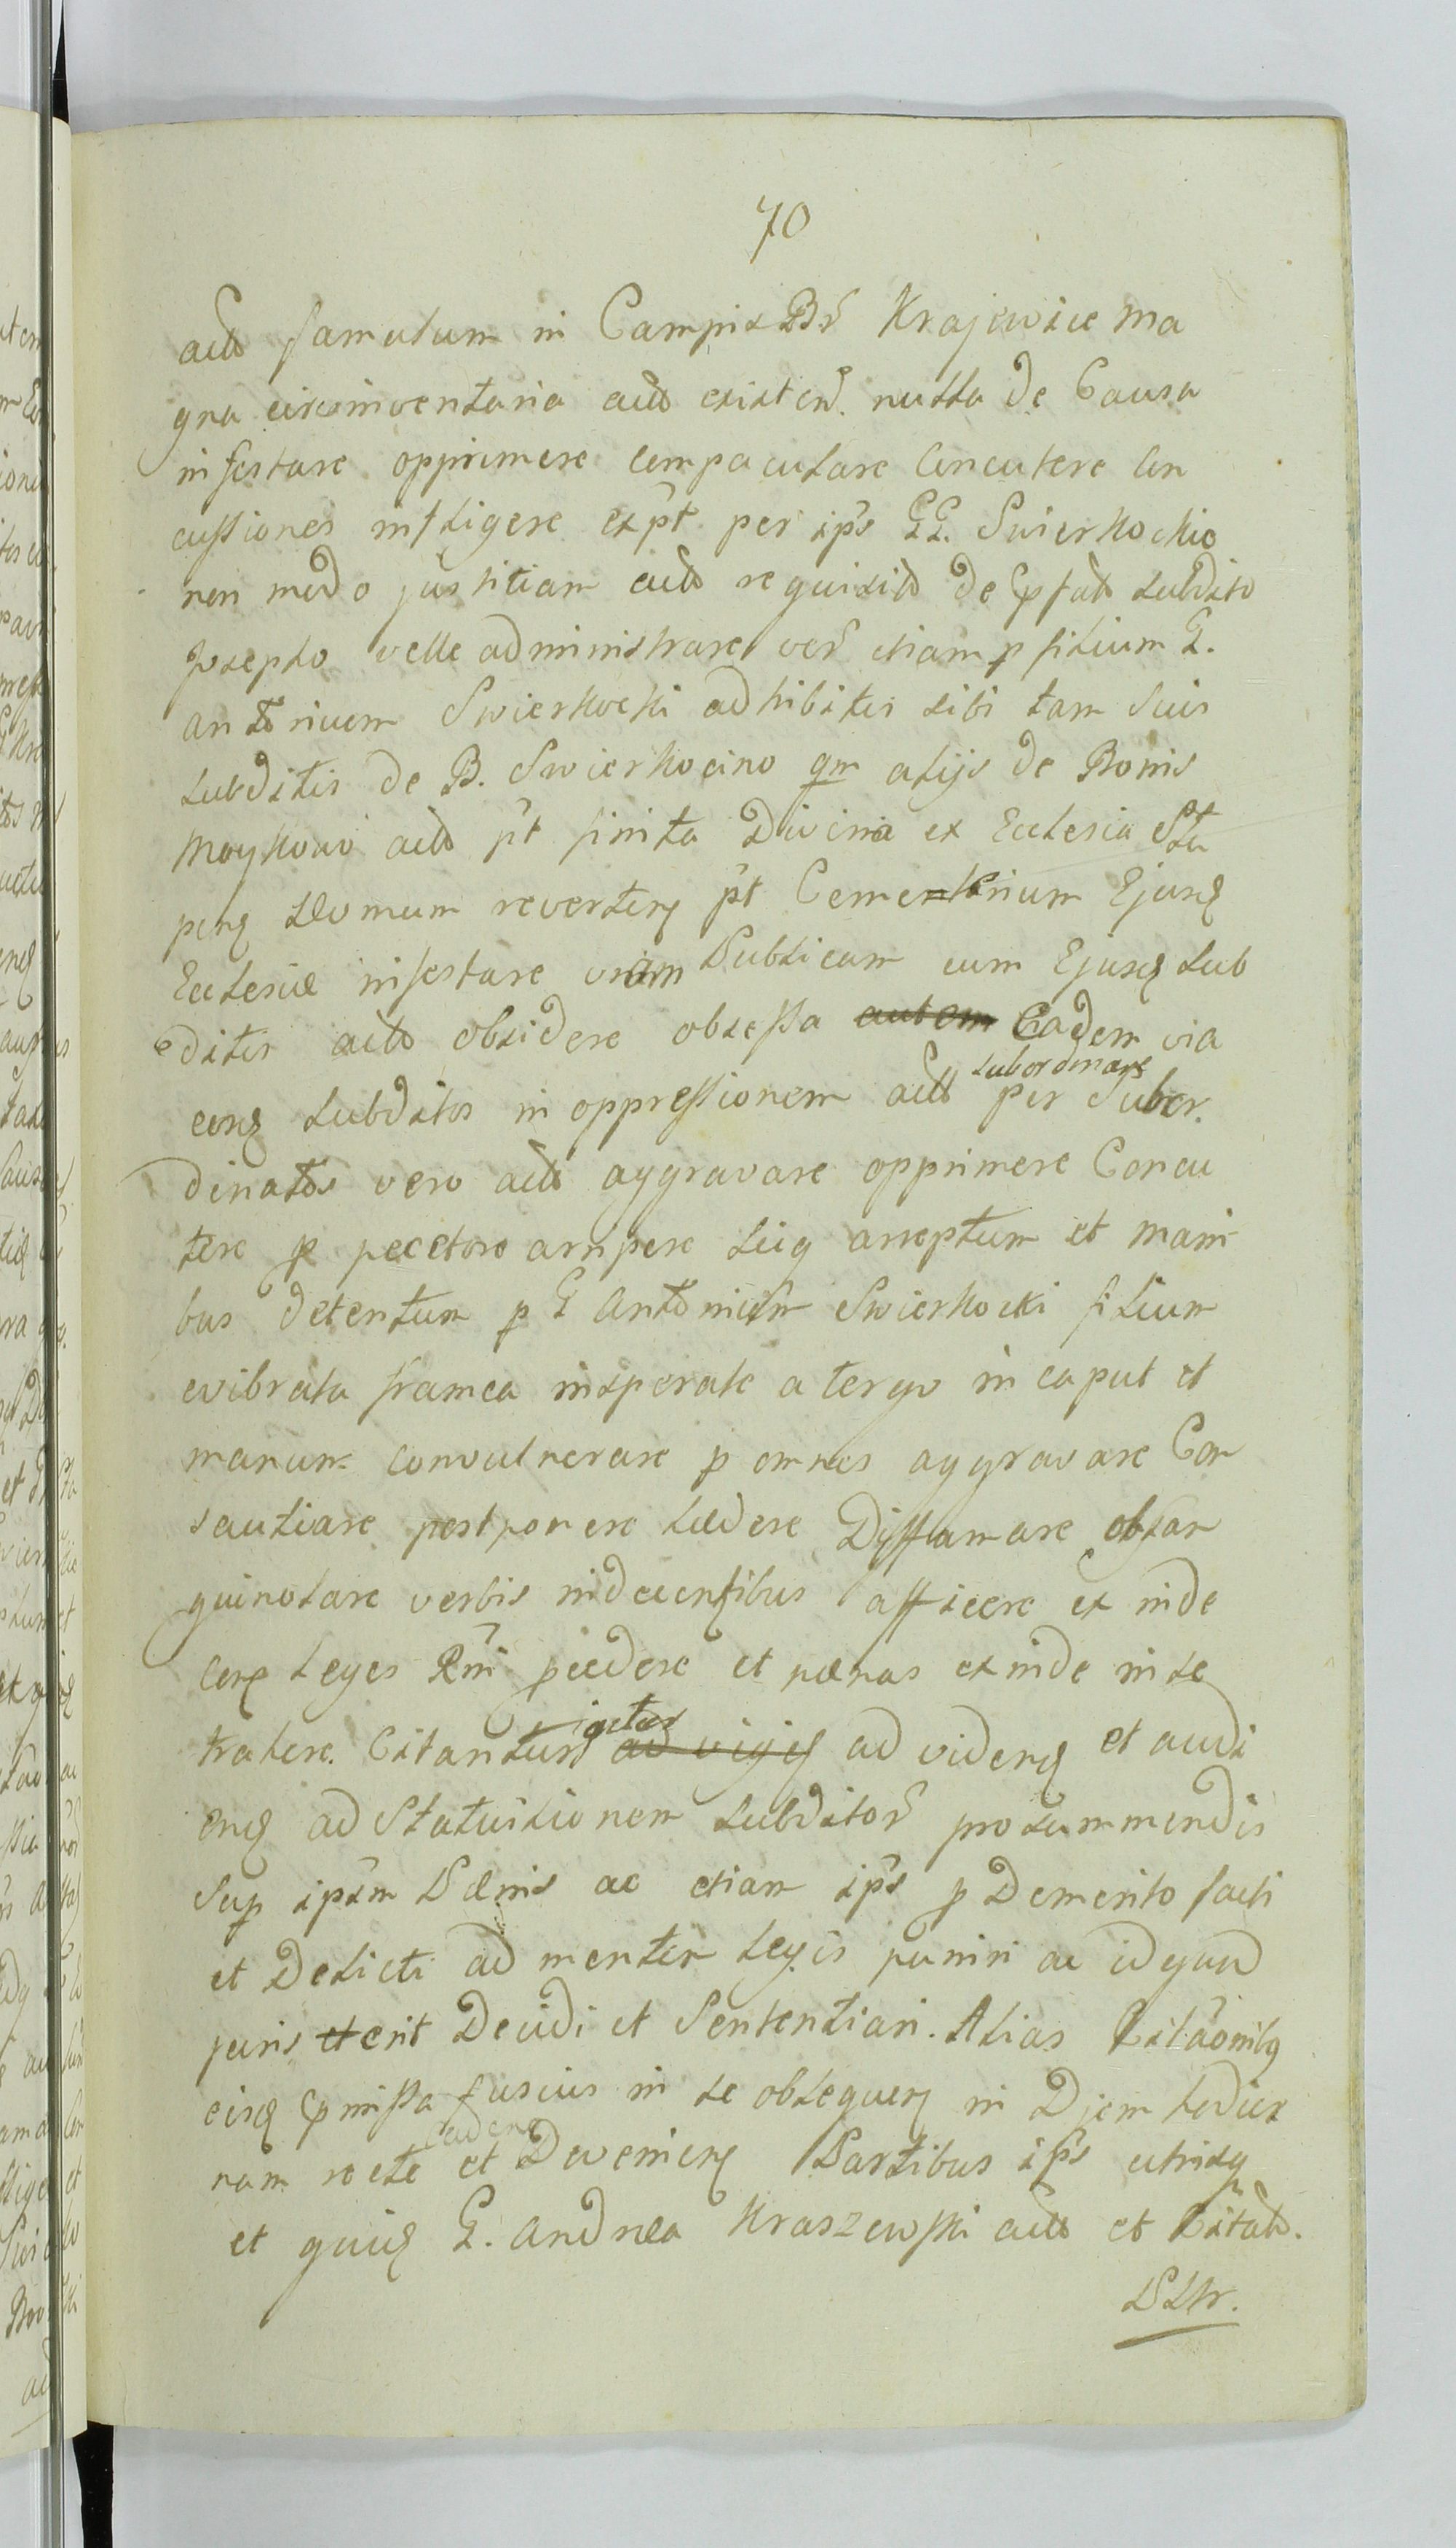 70
actt famulum in Campis Br̃ Krajewice ma
gna circuminventaria actt existen. nulla de Causa
infestare opprimere compaculare concutere con
cussiones infligere expt per ips GG. Swierkockie
non modo justitiam actt requisitt de subdito
Josepho velle administrare verũ etiam p filium G.
Antonium Swierkocki adhibitis sibi tam suis
subditis de B. Swierkocino qm alijs de Bonis
Maykowo actt pt finita Divina ex Ecclesia Stu
penq domum reverterq pt Cementerium Ejusq
Ecclesiæ infestare viam Publicam cum Ejusq sub
ditis actt obsidere obsessa autem Eadem via
eosq subditos in oppressionem actt per subordinare Subor.
dinatos vero actt aggravare opprimere Concu
tere p pectore arripere sicq arreptum et mani
bus detentum p G Antonium Swierkocki filium
evibrata framea insperate a tergo in caput et
manum convulnerare p omnes aggravare Con
sautiare postponere lædere Diffamare obsan
guinolare verbis indecentibus afficere ex inde
Leges Rni pcedere et pænas exinde in se
trahere. Citantur ad videnq et audi
enq ad Statuitionem subditor̃ pro summendis
Sup ipsm Pænis ac etiam ips p Demerito facti
et Delicti ad mentem legis puniri ac id quod
juris et erit Decidi et Sententiari. Alias Citãonibq
eisq pmissa fusius in se obloquenq in Diem hodier
nam recte cadenq et Devenienq Partibus ips utrisq
et quidq G. Andrea Kraszewski actt et Citatt.